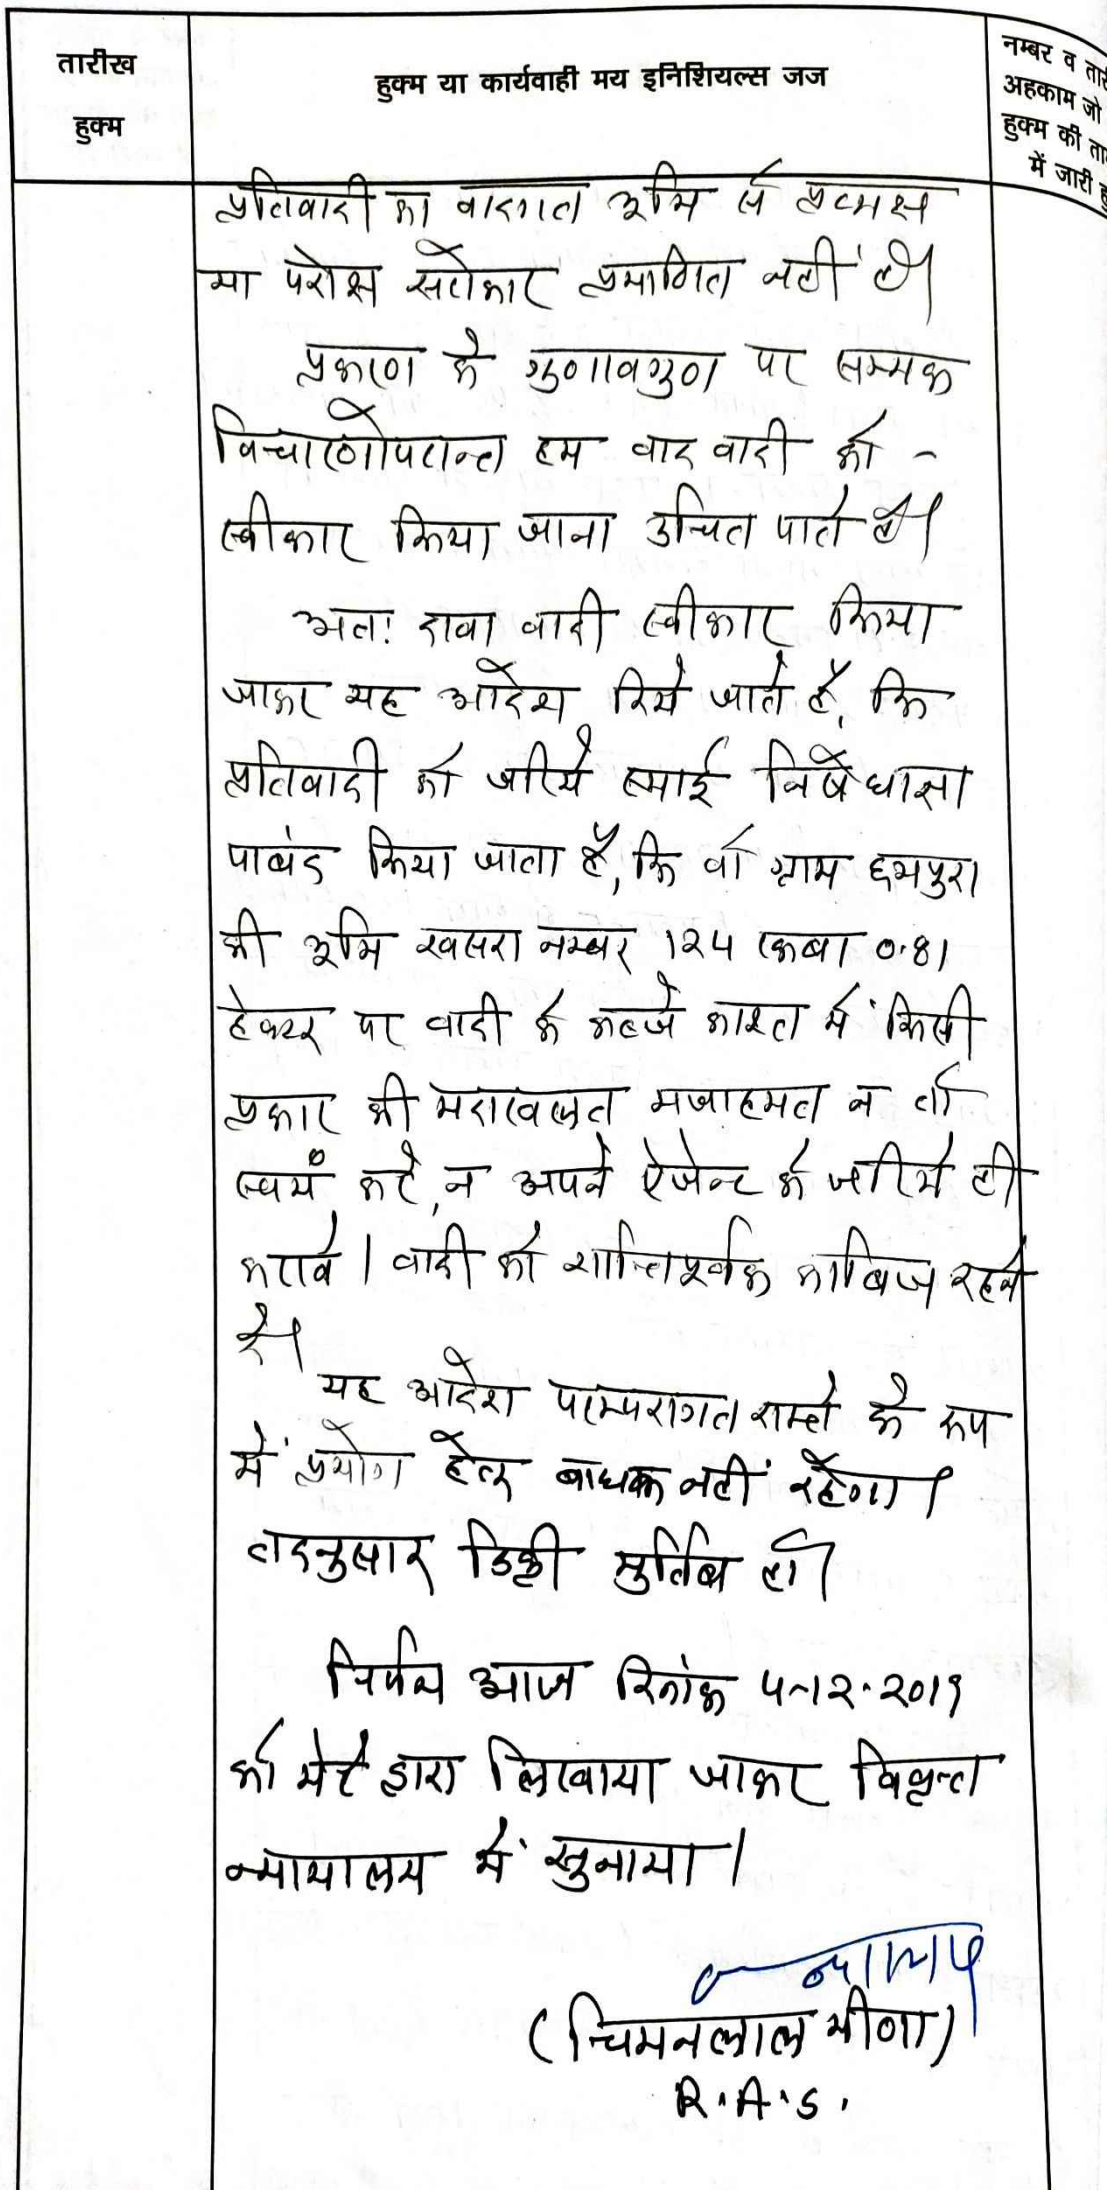 तारीख
हुक्म
हुक्म या कार्यवाही मय इनिशियल्स जज
नम्बर व
अहकाम जो
हुक्म की
में जारी
प्रतिवादी का वादगत भूमि से प्रत्यक्ष
या परोक्ष सरोकार प्रमाणित नहीं है।
प्रकरण के गुणावगुण पर सम्यक
विचारणोपरान्त हम वाद वादी को -
स्वीकार किया जाना उचित पाते है।
अतः दावा वादी स्वीकार किया
जाकर यह आदेश दिये जाते है, कि
प्रतिवादी को जरिये स्थाई निषेधाज्ञा
पाबंद किया जाता है, कि वो ग्राम
की भूमि खसरा नम्बर 124 रकबा 0.81
हेक्टर पर वादी के कब्जे काश्त में किसी
प्रकार की मदाखलत मजाहमत न तो
स्वयं करे, न अपने ऐजेन्ट के जरिये ही
करावे। वादी को शान्तिपूर्वक काबिज रहने
दे।
यह आदेश परम्परागत रास्ते के रूप
में प्रयोग हेतु बाधक नहीं रहेगा।
तदनुसार डिक्री मुर्तिब हो।
निर्णय आज दिनांक -12-2019
को मेरे द्वारा लिखवाया जाकर विवृत्त
न्यायालय में सुनाया।
(चिमनलाल मीणा)
R.A.S.